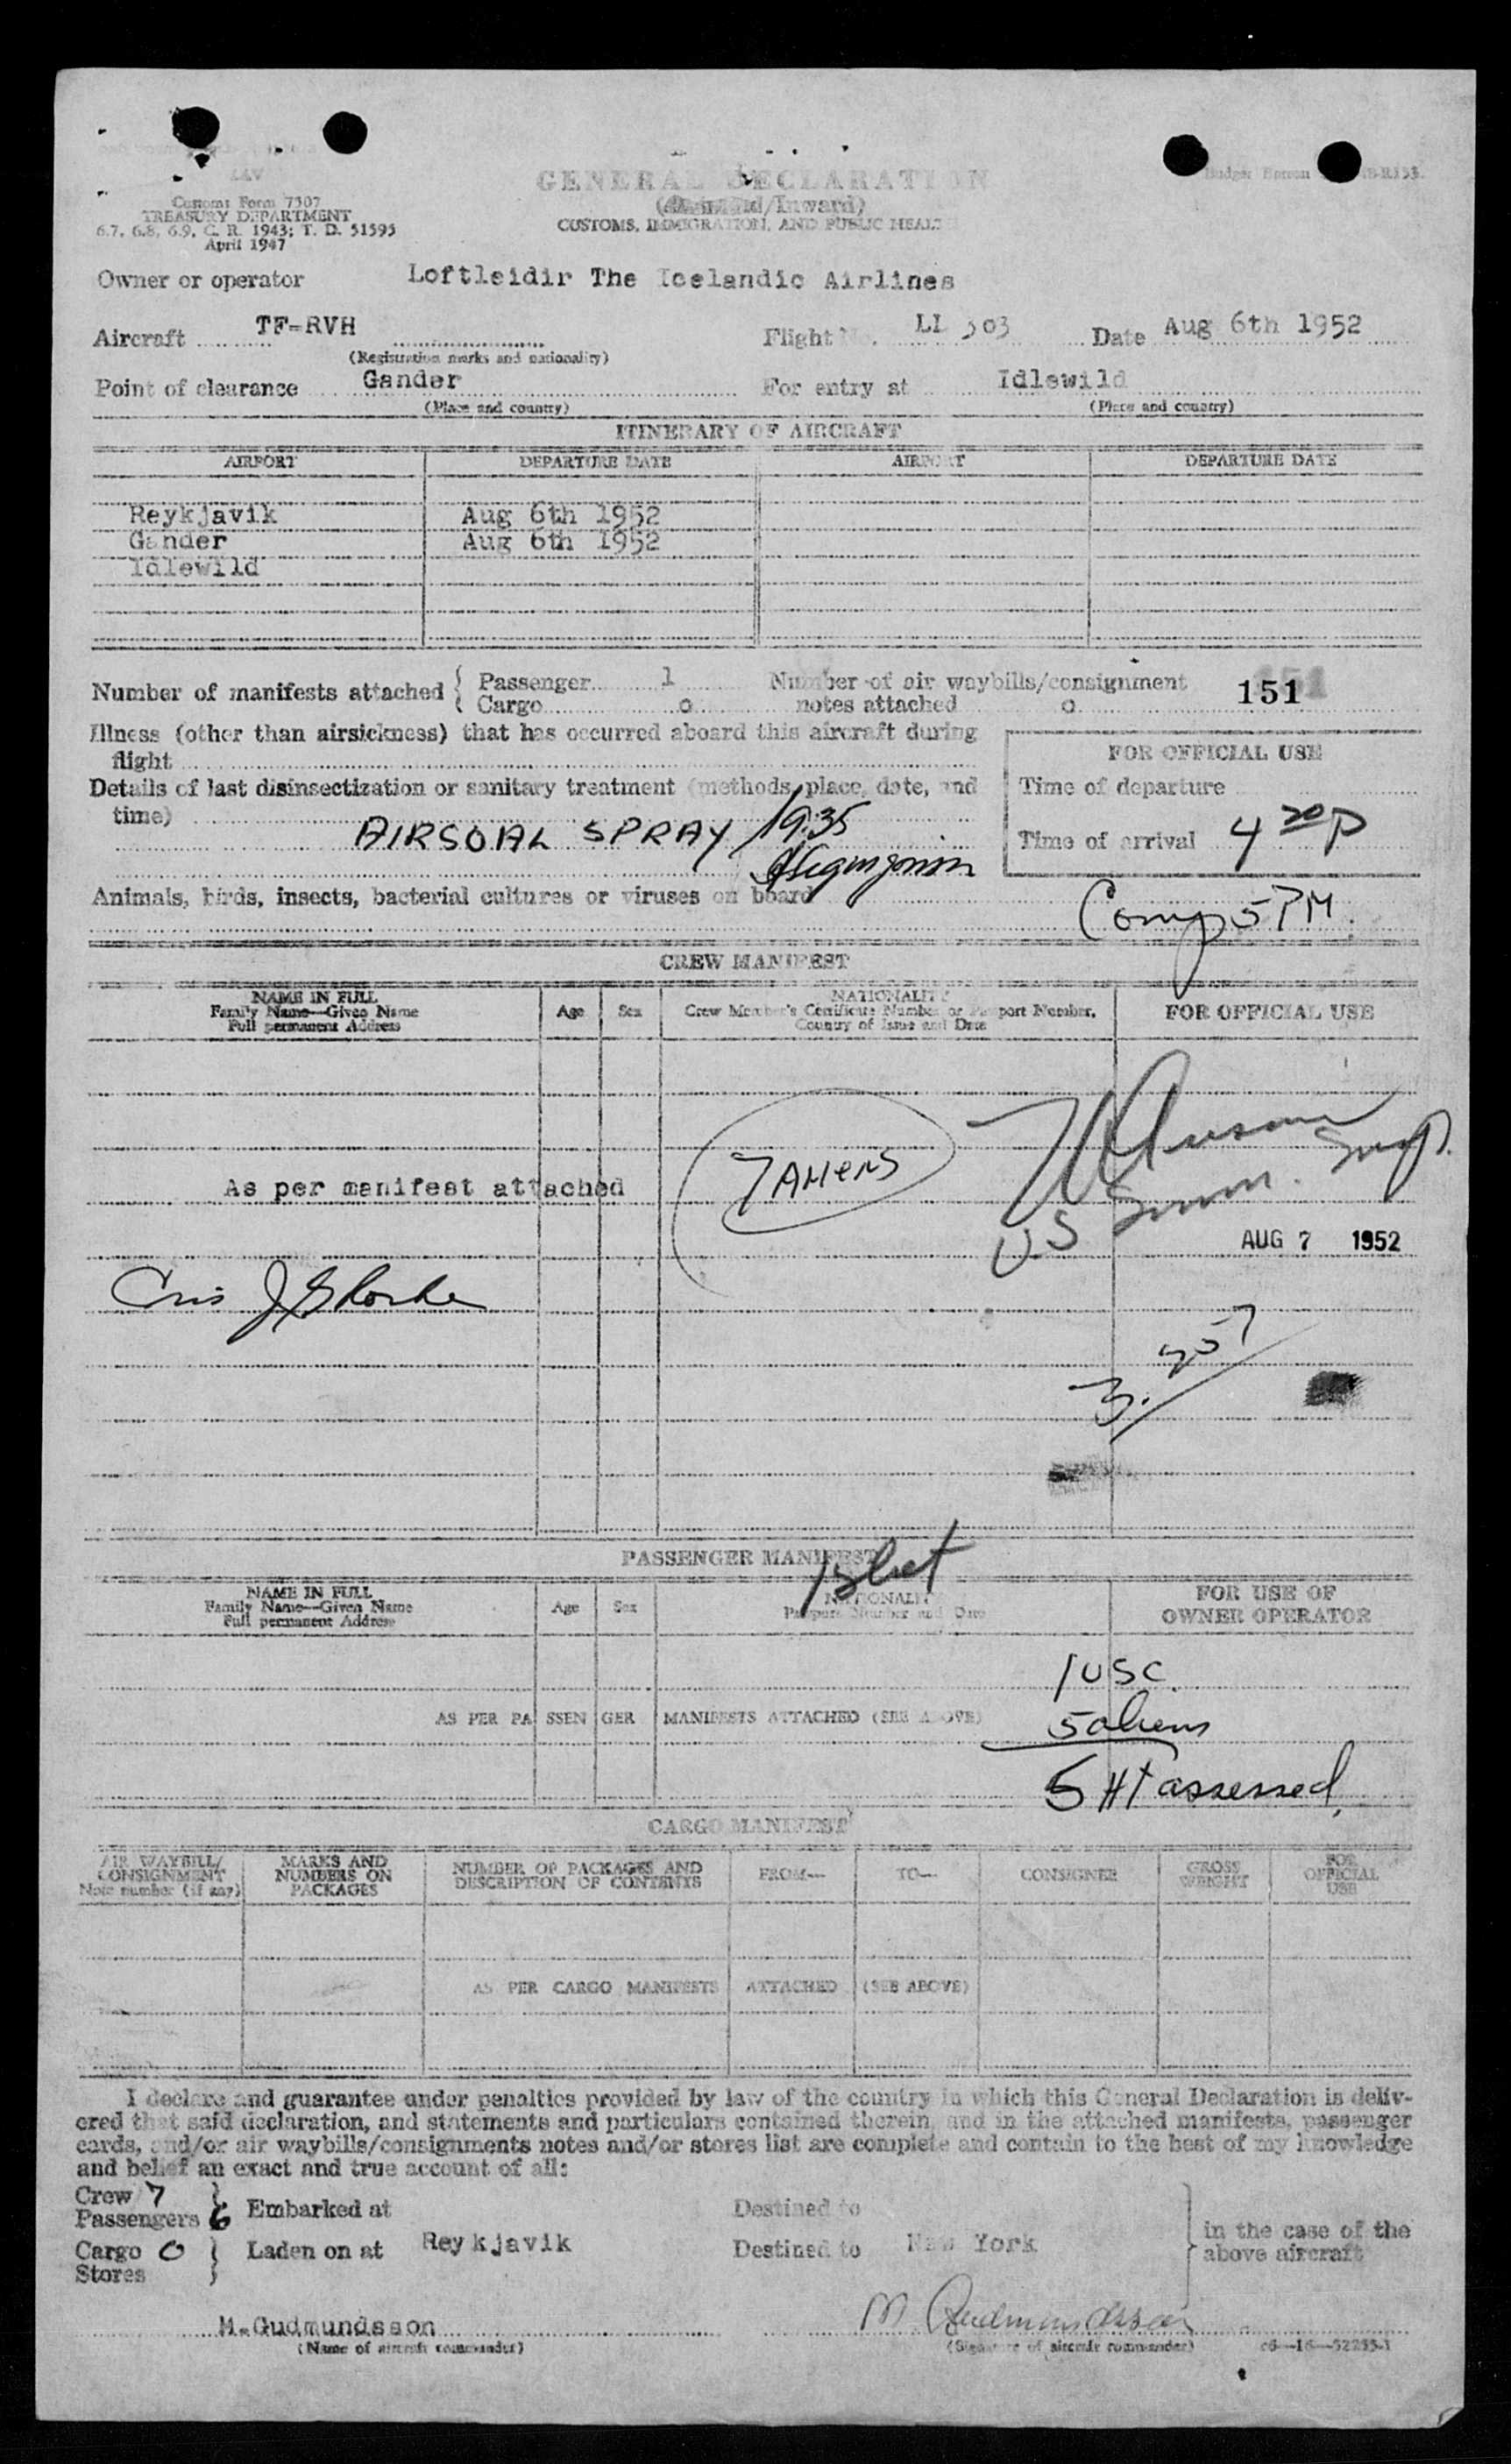 GENERAL DECLARATION
(Outward/Inward)
CUSTOMS, IMMIGRATION, AND PUBLIC HEALTH
Customs Form 7507
TREASURY DEPARTMENT
6.7, 6.8, 6.9, C. R. 1943; T. D. 51595
April 1947
Budget Bureau
Owner or operator Loftleidir The Icelandic Airlines
Aircraft TF-RVH Flight No. LL 303 Date Aug 6th 1952
(Registration marks and nationality)
Point of clearance Gander For entry at Idlewild
(Place and country) (Place and country)
ITINERARY OF AIRCRAFT
AIRPORT DEPARTURE DATE AIRPORT DEPARTURE DATE
Reykjavik Aug 6th 1952
Gander Aug 6th 1952
Idlewild
Number of manifests attached { Passenger 1 Number of air waybills/consignment 151
Cargo o notes attached o
Illness (other than airsickness) that has occurred aboard this aircraft during
flight
FOR OFFICIAL USE
Details of last disinsectization or sanitary treatment (methods, place, date, and
time)
Time of departure
AIRSOAL SPRAY 19:35
Time of arrival 4 20 P
Animals, birds, insects, bacterial cultures or viruses on board
Comp 5 PM.
CREW MANIFEST
NAME IN FULL
Family Name—Given Name
Full permanent Address
Age Sex
NATIONALITY
Crew Member's Certificate Number or Passport Number.
Country of Issue and Date
FOR OFFICIAL USE
As per manifest attached
7 ALIENS
US Imm. Insp.
AUG 7 1952
PASSENGER MANIFEST
NAME IN FULL
Family Name—Given Name
Full permanent Address
Age Sex
NATIONALITY
Passport Number and Date
FOR USE OF
OWNER OPERATOR
1 USC
AS PER PASSENGER MANIFESTS ATTACHED (SEE ABOVE)
5 aliens
5 HT assessed
CARGO MANIFEST
AIR WAYBILL/
CONSIGNMENT
Note number (if any)
MARKS AND
NUMBERS ON
PACKAGES
NUMBER OF PACKAGES AND
DESCRIPTION OF CONTENTS
FROM— TO— CONSIGNEE
GROSS
WEIGHT
FOR
OFFICIAL
USE
AS PER CARGO MANIFESTS ATTACHED (SEE ABOVE)
I declare and guarantee under penalties provided by law of the country in which this General Declaration is deliv-
ered that said declaration, and statements and particulars contained therein, and in the attached manifests, passenger
cards, and/or air waybills/consignments notes and/or stores list are complete and contain to the best of my knowledge
and belief an exact and true account of all:
Crew 7
Passengers 6 } Embarked at Destined to
Cargo O } Laden on at Reykjavik Destined to New York
Stores
in the case of the
above aircraft
M.Gudmundsson M Gudmundsson
(Name of aircraft commander) (Signature of aircraft commander) c6—16—52255-1